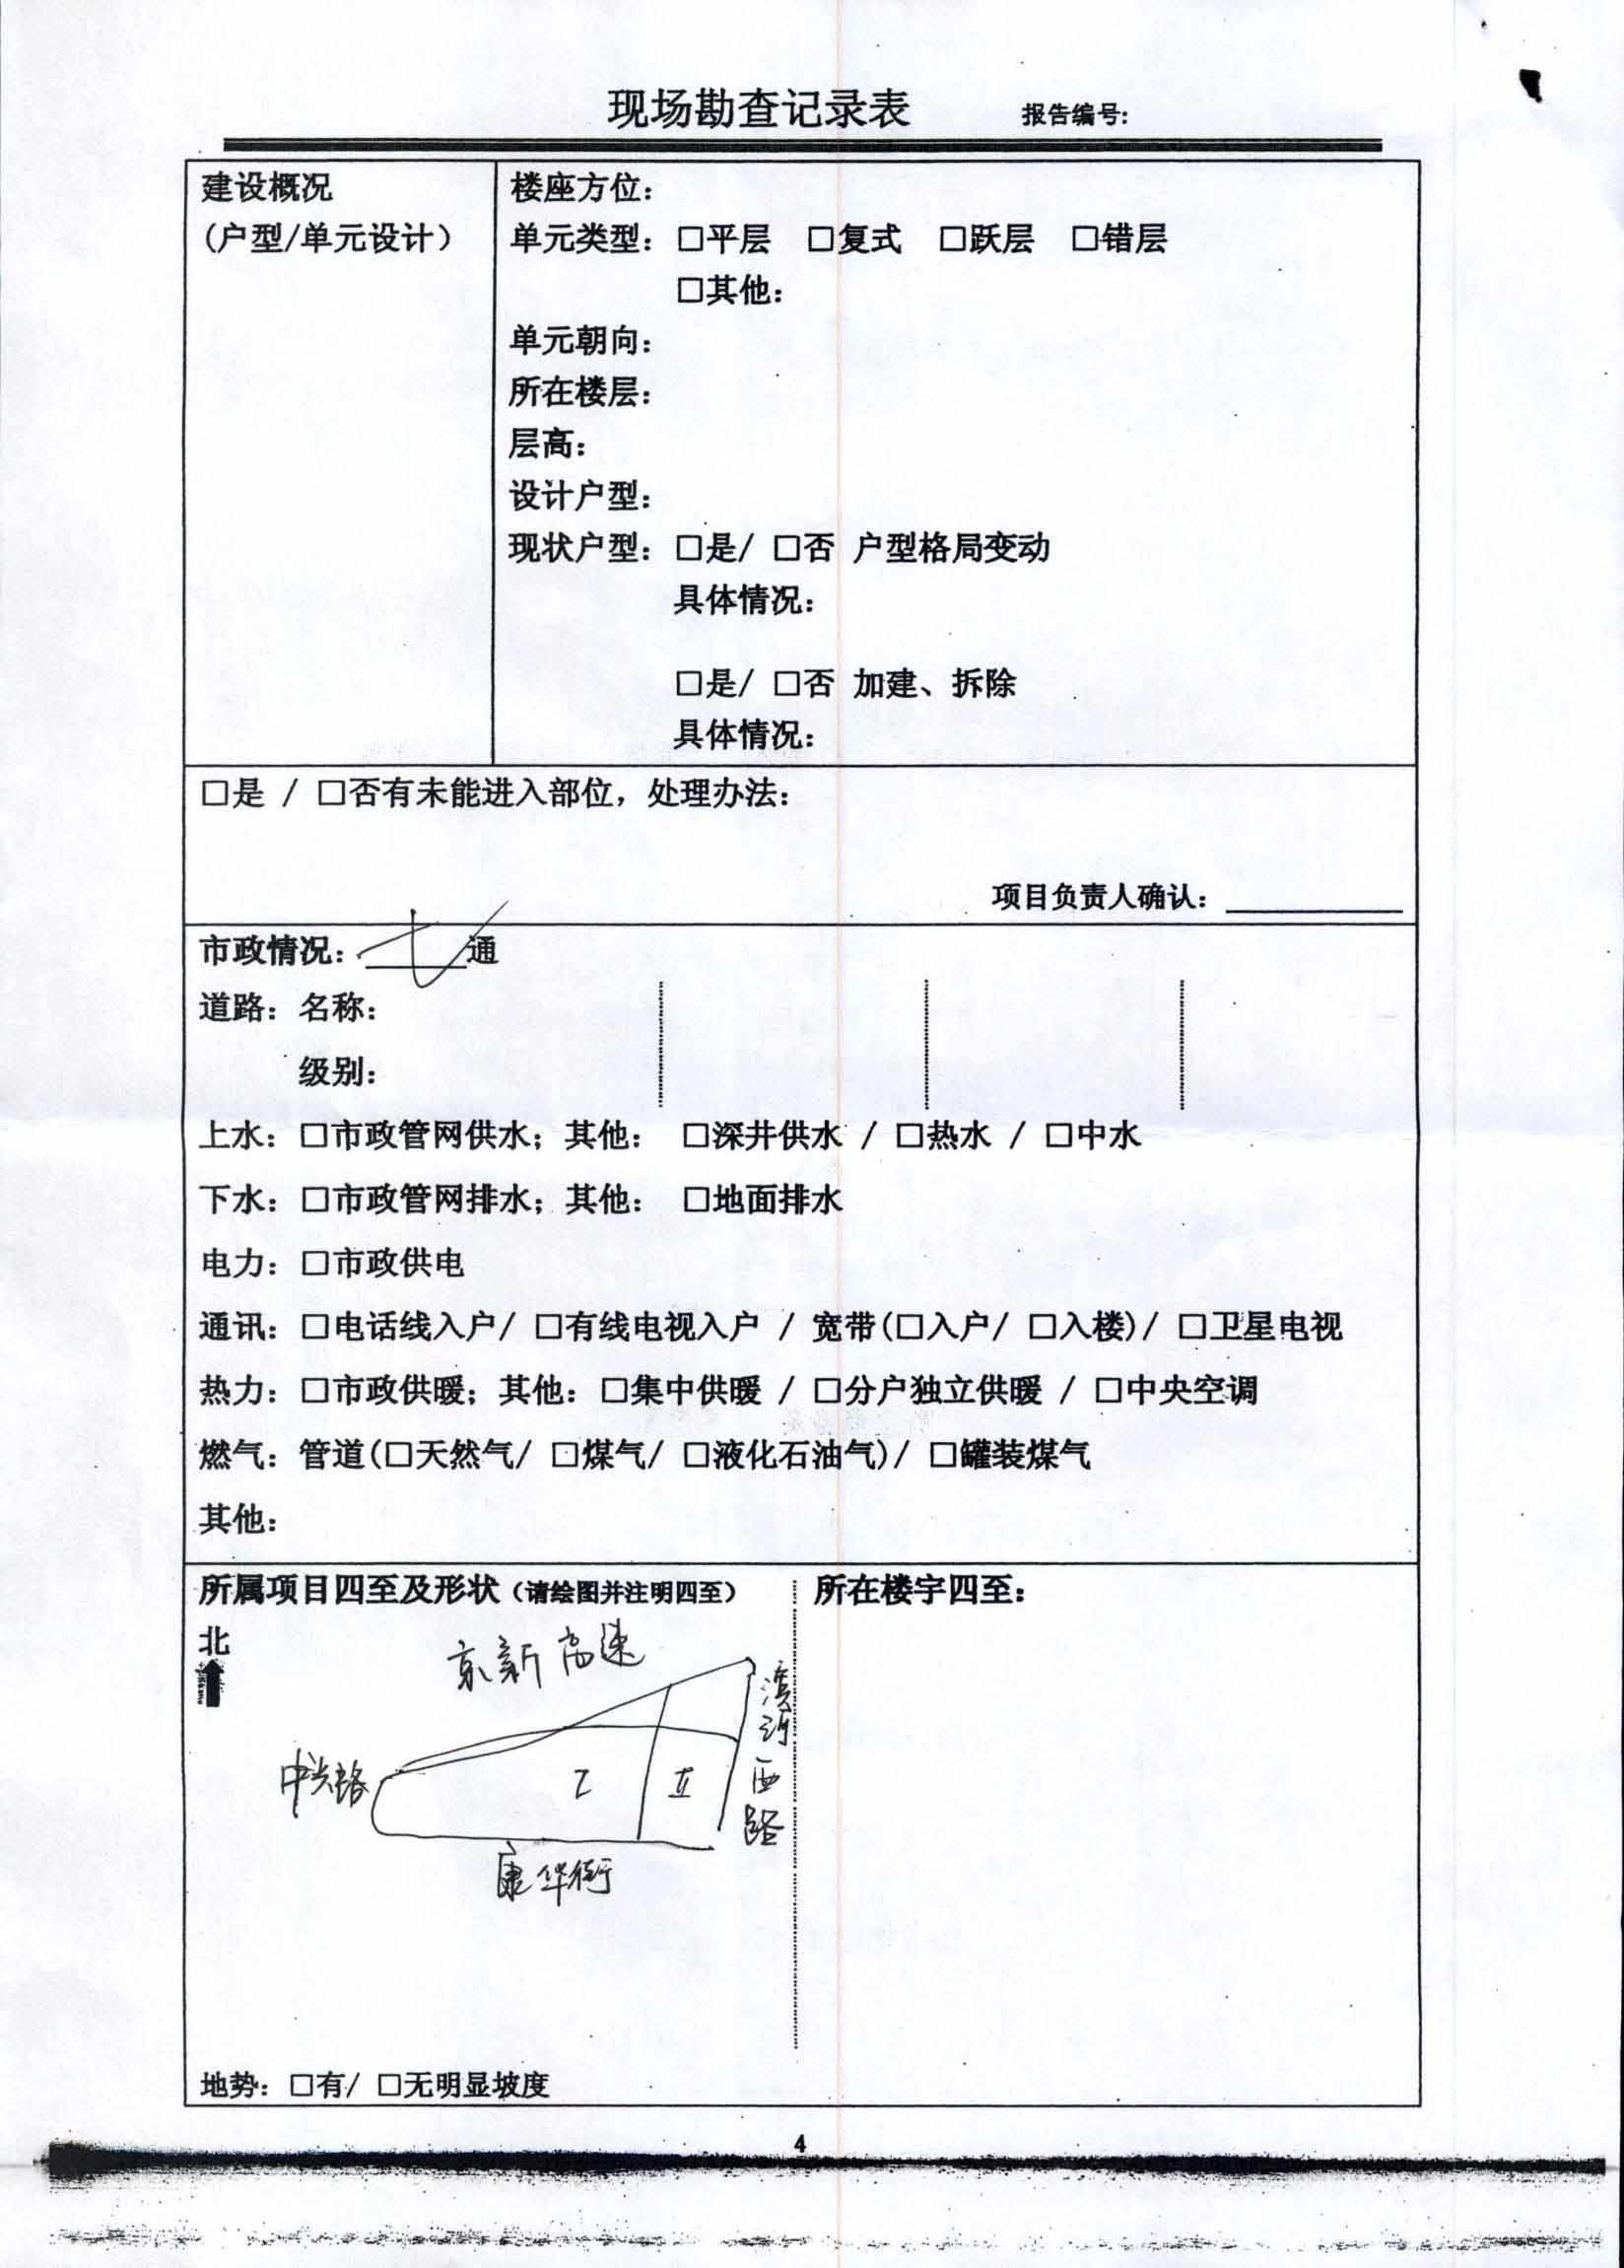 现场勘查记录表 报告编号:
建设概况
(户型/单元设计)
楼座方位:
单元类型: □平层 □复式 □跃层 □错层
□其他:
单元朝向:
所在楼层:
层高:
设计户型:
现状户型: □是/ □否 户型格局变动
具体情况:
□是/ □否 加建、拆除
具体情况:
□是 / □否有未能进入部位, 处理办法:
项目负责人确认:
市政情况: 七通
道路: 名称:
级别:
上水: □市政管网供水; 其他: □深井供水 / □热水 / □中水
下水: □市政管网排水; 其他: □地面排水
电力: □市政供电
通讯: □电话线入户/ □有线电视入户 / 宽带(□入户/ □入楼)/ □卫星电视
热力: □市政供暖; 其他: □集中供暖 / □分户独立供暖 / □中央空调
燃气: 管道(□天然气/ □煤气/ □液化石油气)/ □罐装煤气
其他:
所属项目四至及形状(请绘图并注明四至)
北
京新高速
中兴路
I
II
滨河西路
康华街
所在楼宇四至:
地势: □有/ □无明显坡度
4